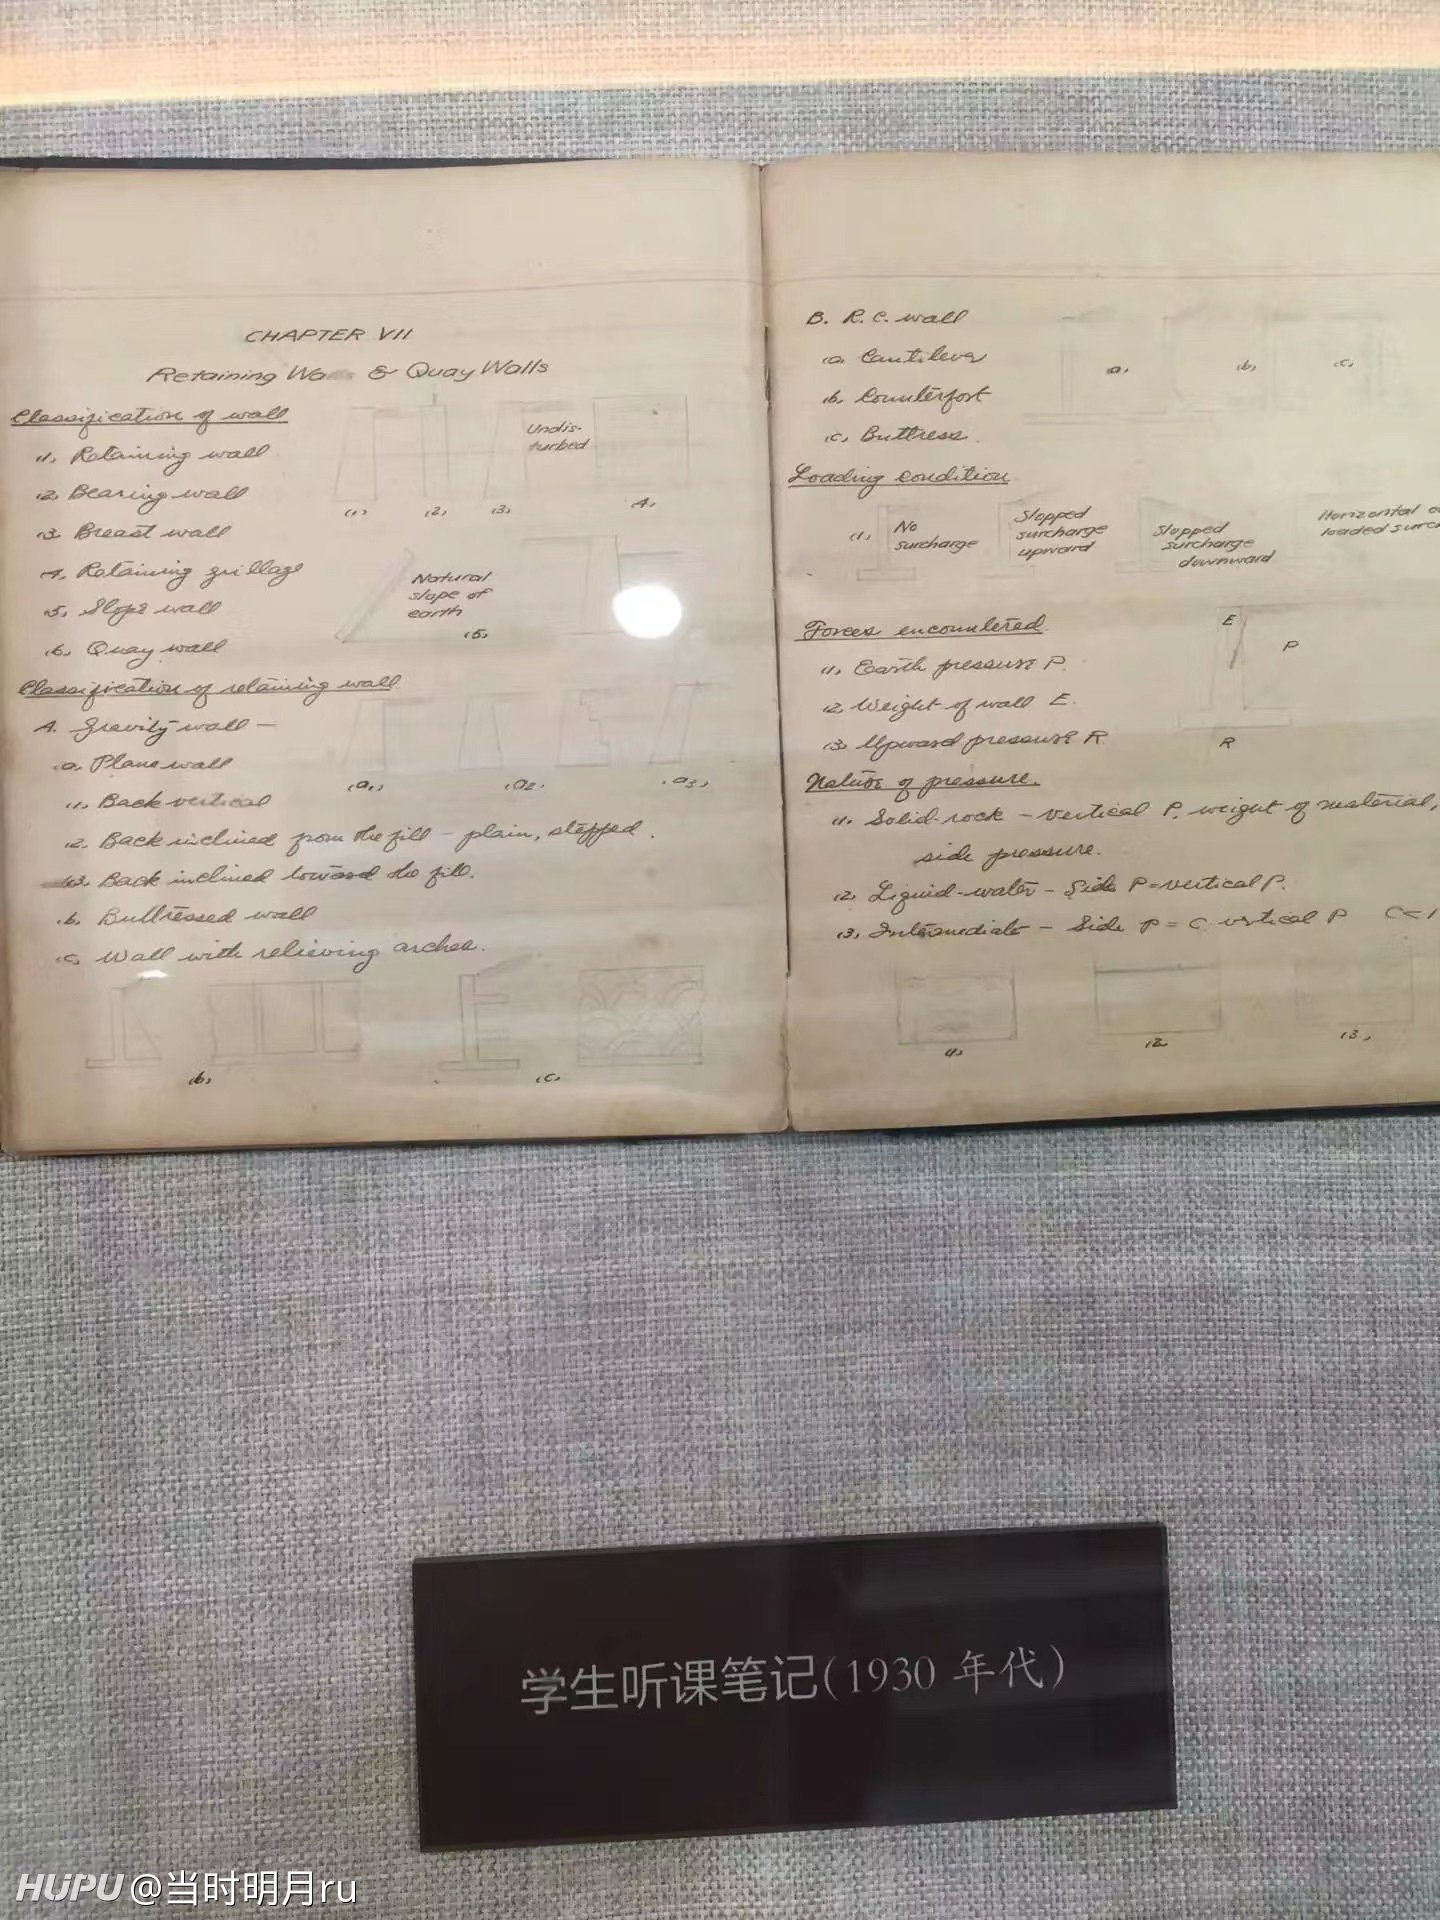 CHAPTER VII
Retaining Wa & Quay Walls
Classification of wall
(1) Retaining wall
(2) Bearing wall
(3) Breast wall
(4) Retaining grillage
(5) Slope wall
(6) Quay wall
Undis-
turbed
(1) (2) (3) 4)
Natural
slope of
earth
(5)
Classification of retaining wall
A. Gravity wall —
(a) Plane wall
(1) Back vertical
(2) Back inclined from the fill – plain, stepped.
(3) Back inclined toward the fill.
(b) Buttressed wall
(c) Wall with relieving arches.
(a1) (a2) (a3)
(b) (c)
B. R.C. wall
(a) Cantilever
(b) Counterfort
(c) Buttress.
(a) (b) (c)
Loading condition
(1) No
surcharge
Slopped
surcharge
upward
Slopped
surcharge
downward
Horizontal
loaded surc
Forces encountered
(1) Earth pressure P.
(2) Weight of wall E.
(3) Upward pressure R
E
P
R
Nature of pressure.
(1) Solid-rock – vertical P. weight of material,
side pressure.
(2) Liquid-water – Side P=vertical P.
(3) Intermediate – Side P = C vertical P C<1
(1) (2) (3)
学生听课笔记(1930 年代)
HUPU @当时明月ru